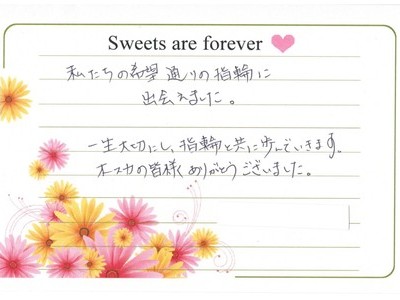 Sweets are forever
私たちの希望通りの指輪に
出会えました。
一生大切にし、指輪と共に歩んでいきます。
木スカの皆様ありがとうございました。